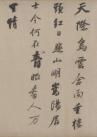 天際烏雲含雨重樓
前紅日照山明嵩陽居
士今何在青眼看人万
里情